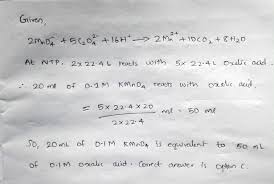 Given,
2MnO₄⁻ + 5C₂O₄²⁻ + 16H⁺ → 2Mn²⁺ + 10CO₂ + 8H₂O
At NTP. 2x22.4L reacts with 5x22.4L oxalic acid.
∴ 20 ml of 0.1M KMnO₄ reacts with oxalic acid,
= 5x22.4x20 / 2x22.4 ml = 50 ml
So, 20mL of 0.1M KMnO₄ is equivalent to 50 mL
of 0.1M oxalic acid. Correct answer is option C.